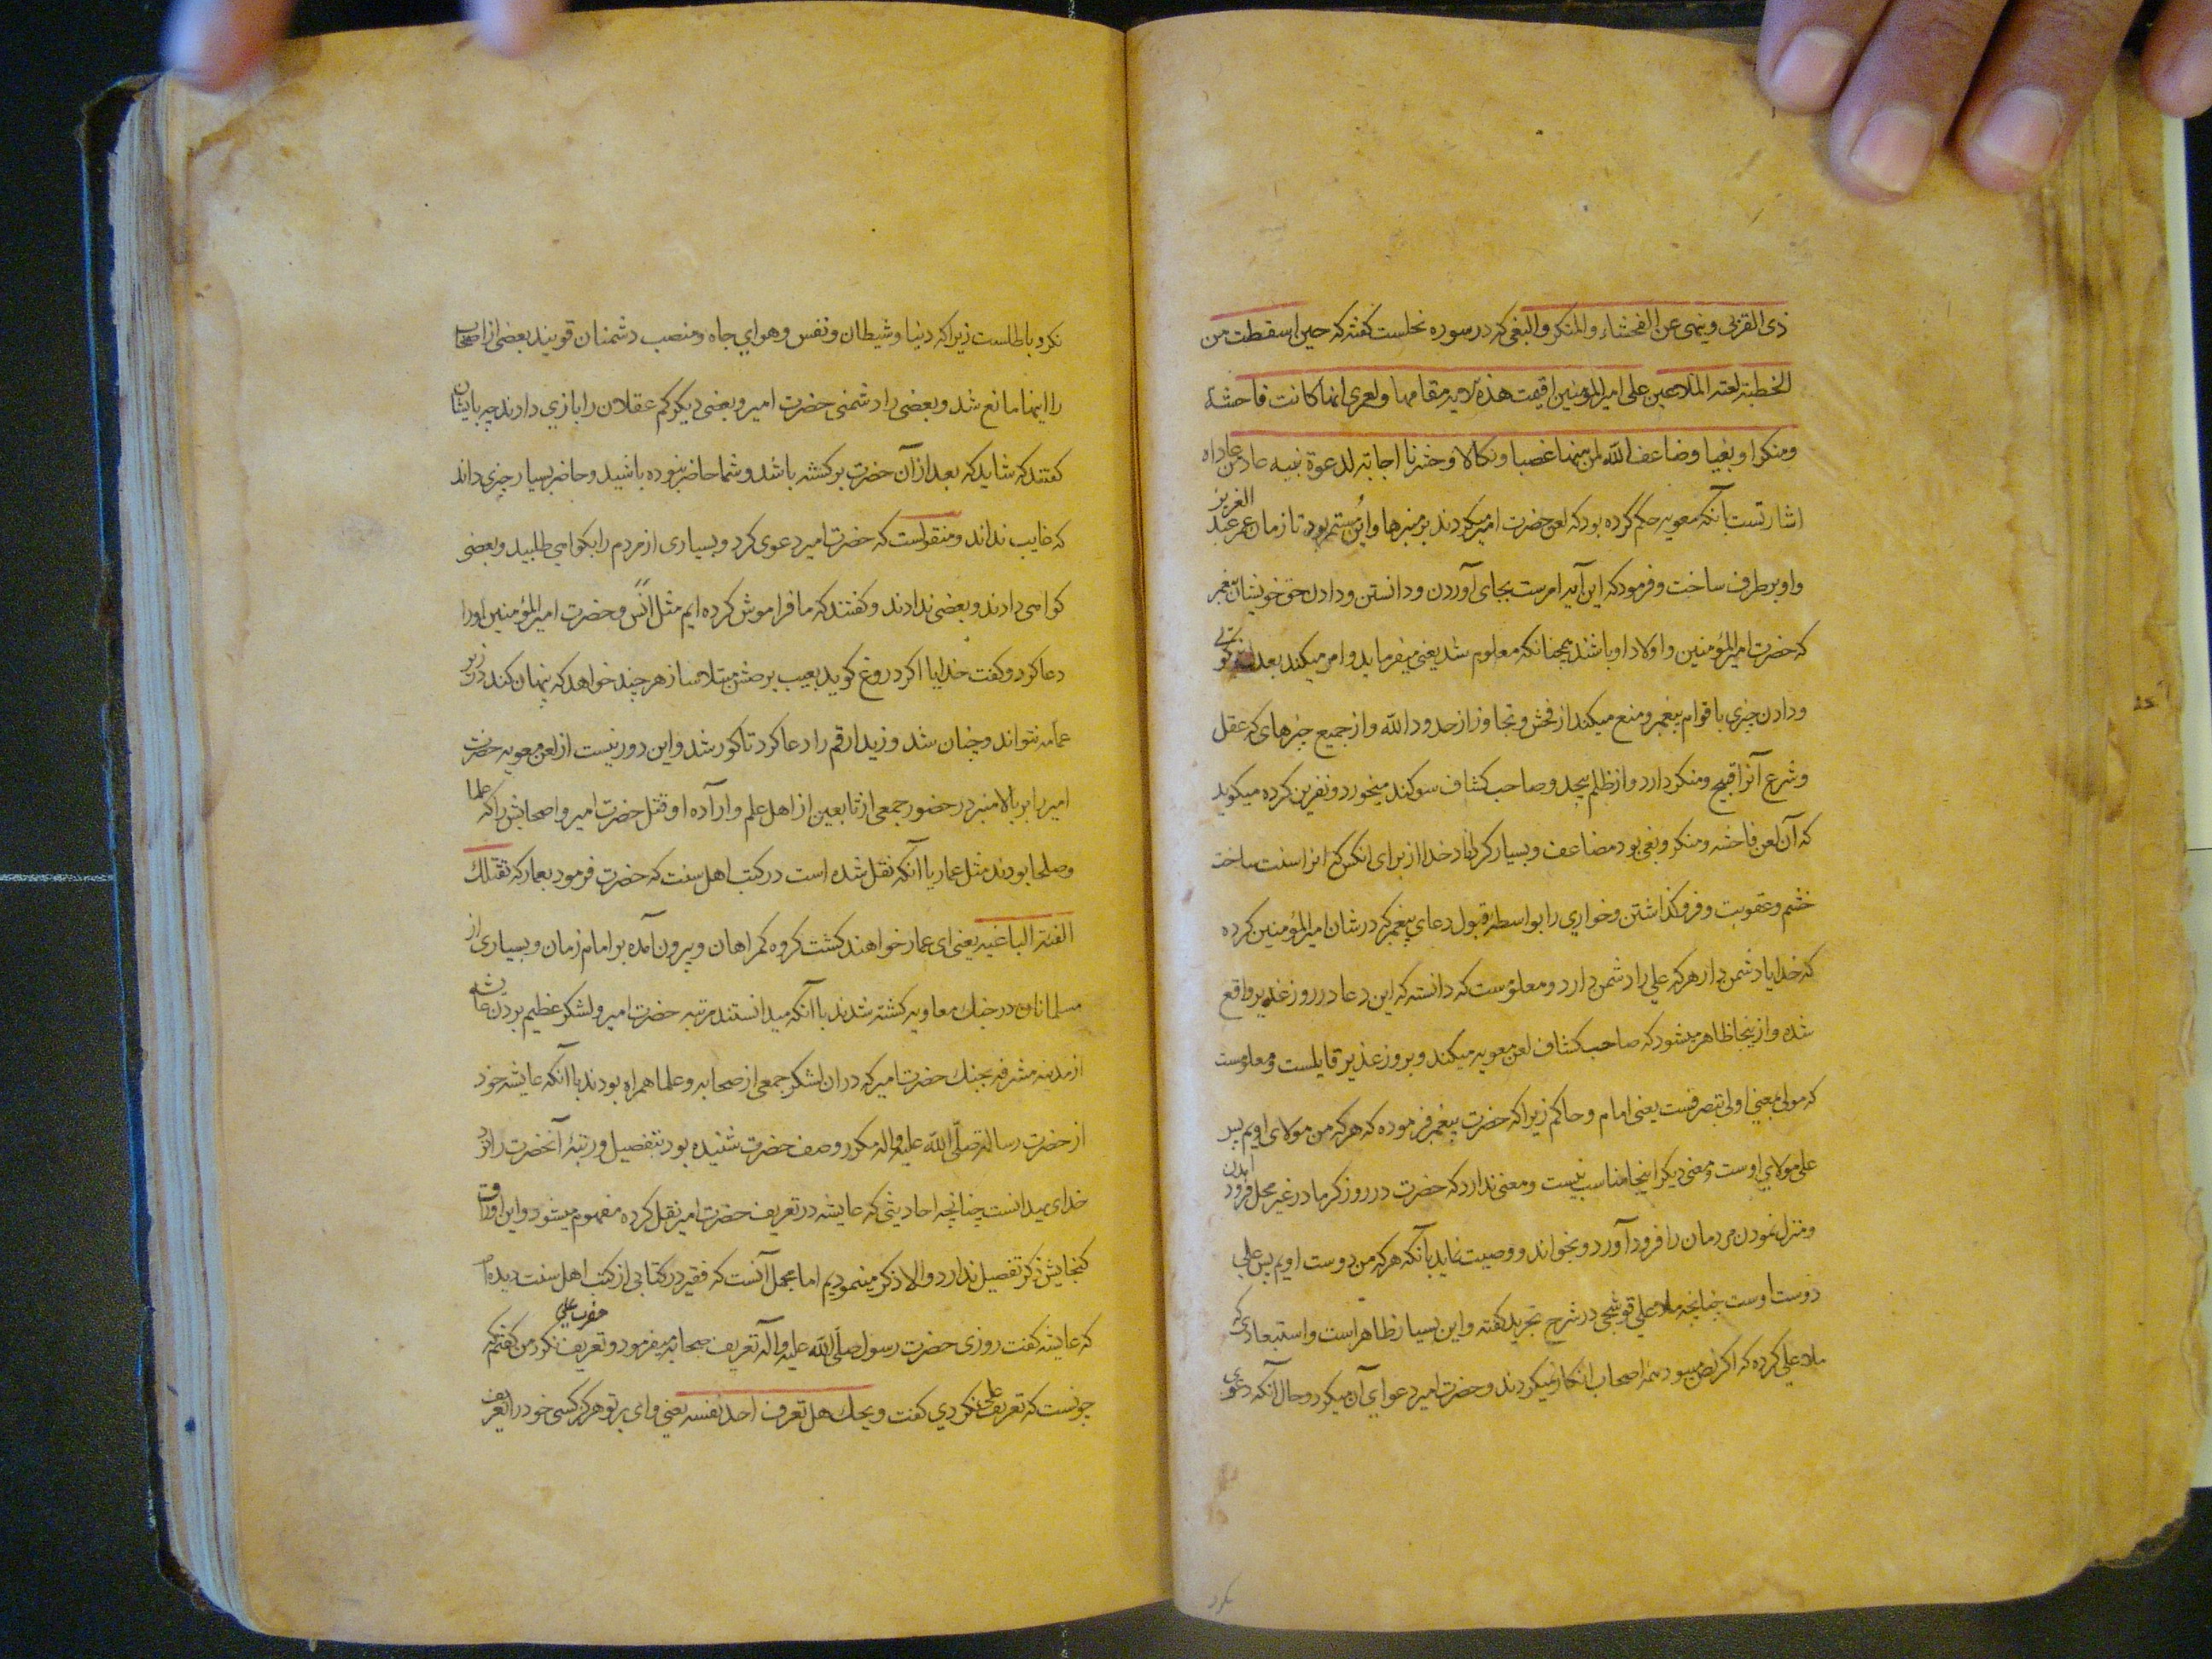 ذی القربی وینهی عن الفحشاء والمنکر والبغی که در سوره نحلست کفته که حین اسقطت من
الخطبة لعنة الملاعین علی امیرالمؤمنین اقیمت هذه الایه مقامها ولعمری انها کانت فاحشة
ومنکرا وبغیا وضاعف الله لمن سنها غضبا ونکالا وخزیا اجابة لدعوة نبیه عاد من عاداه
اشارتست بآنکه معویه حکم کرده بود که لعن حضرت امیر میکردند بر منبرها واین مستمر بود تا زمان عمر عبد العزیز
واو برطرف ساخت وفرمود که این آیه امرست بجای آوردن ودانستن ودادن حق خویشان پیغمبر
که حضرت امیرالمؤمنین واولاد او باشند همچنانکه معلوم شد یعنی میفرماید وامر میکند بعدل ونیکویی
ودادن چیزی باقوام پیغمبر ومنع میکند از فحش وتجاوز از حدود الله واز جمیع چیزهای که عقل
وشرع آنرا قبیح ومنکر دارد واز ظلم بیحد وصاحب کشاف سوکند میخورد ونفرین کرده میکوید
که آن لعن فاحشه ومنکر وبغی بود مضاعف وبسیار کرداناد خدا از برای انکس که انرا سنت ساخت
خشم وعقوبت وفروکذاشتن وخواری را بواسطه قبول دعای پیغمبر که در شان امیرالمؤمنین کرده
که خدایا دشمن دار هرکه علی را دشمن دارد ومعلومست که دانسته که این دعا در روز غدیر واقع
شده وازینجا ظاهر میشود که صاحب کشاف لعن معویه میکند وبروز غدیر قایلست ومعلومست
که مولی بمعنی اولی بتصرفست یعنی امام وحاکم زیرا که حضرت پیغمبر فرموده که هرکه من مولای اویم پس
علی مولای اوست ومعنی دیکر اینجا مناسب نیست ومعنی ندارد که حضرت در روز کرما در غیر محل فرود امدن
ومنزل نمودن مردمان را فرود آورد وبخواند ووصیت نماید بآنکه هرکه من دوست اویم پس علی
دوست اوست چنانچه ملا علی قوشجی در شرح تجرید کفته واین بسیار ظاهر است واستبعادی که
ملا علی کرده که اکر نص میبود همه اصحاب انکار نمیکردند وحضرت امیر دعوای آن میکرد وحال آنکه دعوی
نکرد باطلست زیرا که دنیا وشیطان ونفس وهوای جاه ومنصب دشمنان قویند بعضی از اصحاب
را اینها مانع شد وبعضی را دشمنی حضرت امیر وبعضی دیکر کم عقلان را بازی دادند چه بایشان
کفتند که شاید که بعد از آن حضرت برکشته باشد وشما حاضر نبوده باشید وحاضر بسیار چیزی داند
که غایب نداند ومنقولست که حضرت امیر دعوی کرد وبسیاری از مردم را بکواهی طلبید وبعضی
کواهی دادند وبعضی ندادند وکفتند که ما فراموش کرده ایم مثل انس وحضرت امیرالمؤمنین اورا
دعا کرد وکفت خدایا اکر دروغ کوید بعیب برصش مبتلا ساز هرچند خواهد که پنهان کند در زیر
عمامه نتواند وچنان شد وزید ارقم را دعا کرد تا کور شد واین دور نیست از لعن معویه حضرت
امیر را بر بالا منبر در حضور جمعی از تابعین از اهل علم واراده او قتل حضرت امیر واصحابش را که علما
وصلحا بودند مثل عمار با آنکه نقل شده است در کتب اهل سنت که حضرت فرمود بعمار که تقتلک
الفئة الباغیه یعنی ای عمار خواهند کشت کروه کمراهان وبیرون آمده بر امام زمان وبسیاری از
مسلمانان در جنک معاویه کشته شدند با آنکه میدانستند مرتبه حضرت امیر ولشکر عظیم بردن عایشه
از مدینه مشرفه بجنک حضرت امیر که دران لشکر جمعی از صحابه وعلما همراه بودند با آنکه عایشه خود
از حضرت رسالة صلی الله علیه واله مکرر وصف حضرت شنیده بود بتفصیل ورتبهٔ آنحضرت را نزد
خدای میدانست چنانچه احادیثی که عایشه در تعریف حضرت امیر نقل کرده مفهوم میشود واین اوراق
کنجایش ذکر تفصیل ندارد والا ذکر مینمودیم اما مجمل آنست که فقیر در کتابی از کتب اهل سنت دیده ام
که عایشه کفت روزی حضرت رسول صلی الله علیه وآله تعریف صحابه میفرمود وتعریف حضرت علی نکرد من کفتم که
چونست که تعریف علی نکردی کفت ویحک هل تعرف احد نفسه یعنی وای بر تو هرکز کسی خود را تعریف